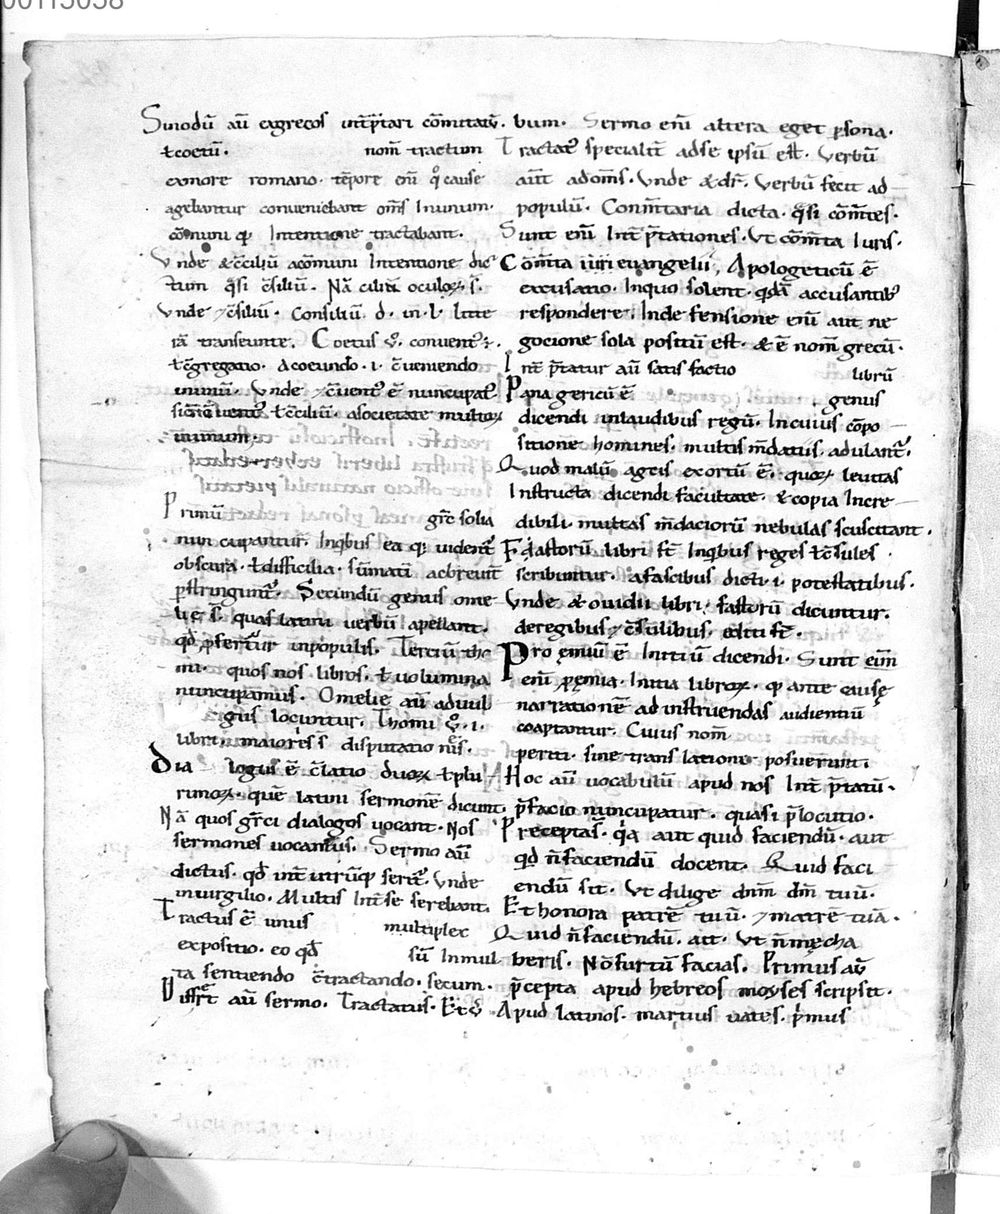 00115058
Sinodū aū exgrecos int̄p̄tari cōmitatū.
ł coetū. nom̄ tractum
exmore romano. tēpore enī qͦ cause
agebantur conueniebant om̄s Inunum.
cōmuni q; Intentione tractabant.
Vnde & c̄ciliū acōmuni Intentione dic
tum q̄si c̄siliū. Nā cilia oculoꝝ s̄.
Vnde & c̄siliū. Consiliū. d. in. l. litte
rā transeunte. Coetus ū. conuentꝰ ē.
ł c̄gregatio. Acoeundo. i. c̄ueniendo
inunū. Vnde & c̄uentꝰ ē nuncupatꝰ.
sic c̄uentꝰ ł c̄ciliū asocietate multoꝝ
inunum.
Primū gr̄c solia
nuncupantur. Inqbus ea q; uident̄
obscura. ł difficilia. sūmati acbreuit̄
p̄stringunt̄. Secundū genus ome
lię s̄. quas latini uerbū apellant.
qd̄ ꝓfertur inpopulis. Terciū tho
mi. quos nos libros. ł uolumina
nuncupamus. Omelię aū aduul
gus locuntur. Thomi ū. i.
libri. maiores s̄ disputationēs.
Dia logus ē c̄latio duoꝝ ł plu
rimoꝝ. quē latini sermonē dicunt.
Nā quos gr̄ci dialogos uocant. Nos
sermones uocamus. Sermo aū
dictus. qd̄ int̄ utrūq; serit̄. Vnde
inuirgilio. Multis Int̄se serebant.
Tractus ē unus multiplex
expositio. eo qd̄ sū Inmul
ta sentiendo c̄tractando. secum.
Differt aū sermo. Tractatus. Et ū
bum. Sermo enī altera eget p̱sona.
Tractatꝰ specialit̄ adse ipsū est. Verbū
aūt adom̄s. Vnde & dr̄. Verbū fecit ad
populū. Conm̄taria dicta. q̄si cōm̄tes.
Sunt enī Int̄p̄tationes. Vt cōm̄ta Iuris.
Cōm̄ta iuri euangelii, Apologeticū ē
excusatio. Inquo solent. qdā accusantibꝰ
respondere. Inde fensione enī aut ne
gocione sola positū est. & ē nom̄ grecū.
Int̄p̄tatur aū satis factio librū
Panagericū ē genus
dicendi inlaudibus regū. Incuius cōpo
sitionē homines. multis m̄datiis. adulantꝰ.
Quod malū ageis exortū ē. quoꝝ leuitas
Instructa dicendi facultate. & copia Incre
dibili. multas m̄daciorū nebulas scuscitant.
Fastorū libri st̄ Inqbus reges ł c̄sules
scribuntur. afascibus dicti. i. potestatibus.
Vnde & ouidii libri fastorū dicuntur.
deregibus & c̄sulibus. editi st̄.
Pro ęmiū ē Initiū dicendi. Sunt eīm
enī ꝓęmia. Initia libroꝝ. q; ante causę
narrationē ad instruendas audientiū
coaptantur. Cuius nom̄
periti. sine trans latione posuerunt.
Hoc aū uocabulū apud nos Int̄p̄tatū.
p̄facio nuncupatur. quasi p̄locutio.
Preceptas. q̄a aut quid faciendū. aut
qd̄ n̄faciendū docent. Quid faci
endū sit. Vt dilige dnm̄ dm̄ tuū.
Et honora patrē tuū. & matrē tuā.
Quid n̄faciendū. ait. Vt n̄męcha
beris. Nōfurtū facias. Primus aū
p̄cepta apud hebreos moyses scripsit.
Apud latinos. martius uates. p̄mus